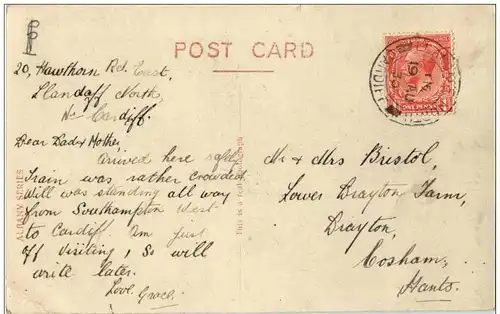 POST CARD
20, Hawthorn Rd. East,
Llandaff North,
Nr Cardiff.
Dear Dad & Mother,
Arrived here safely
Train was rather crowded
Will was standing all way
from Southampton West
to Cardiff. Am just
off visiting, so will
write later.
Love. Grace.
ALBANY SERIES
This is a real photograph
Mr & Mrs Bristol,
Lower Drayton Farm,
Drayton,
Cosham,
Hants.